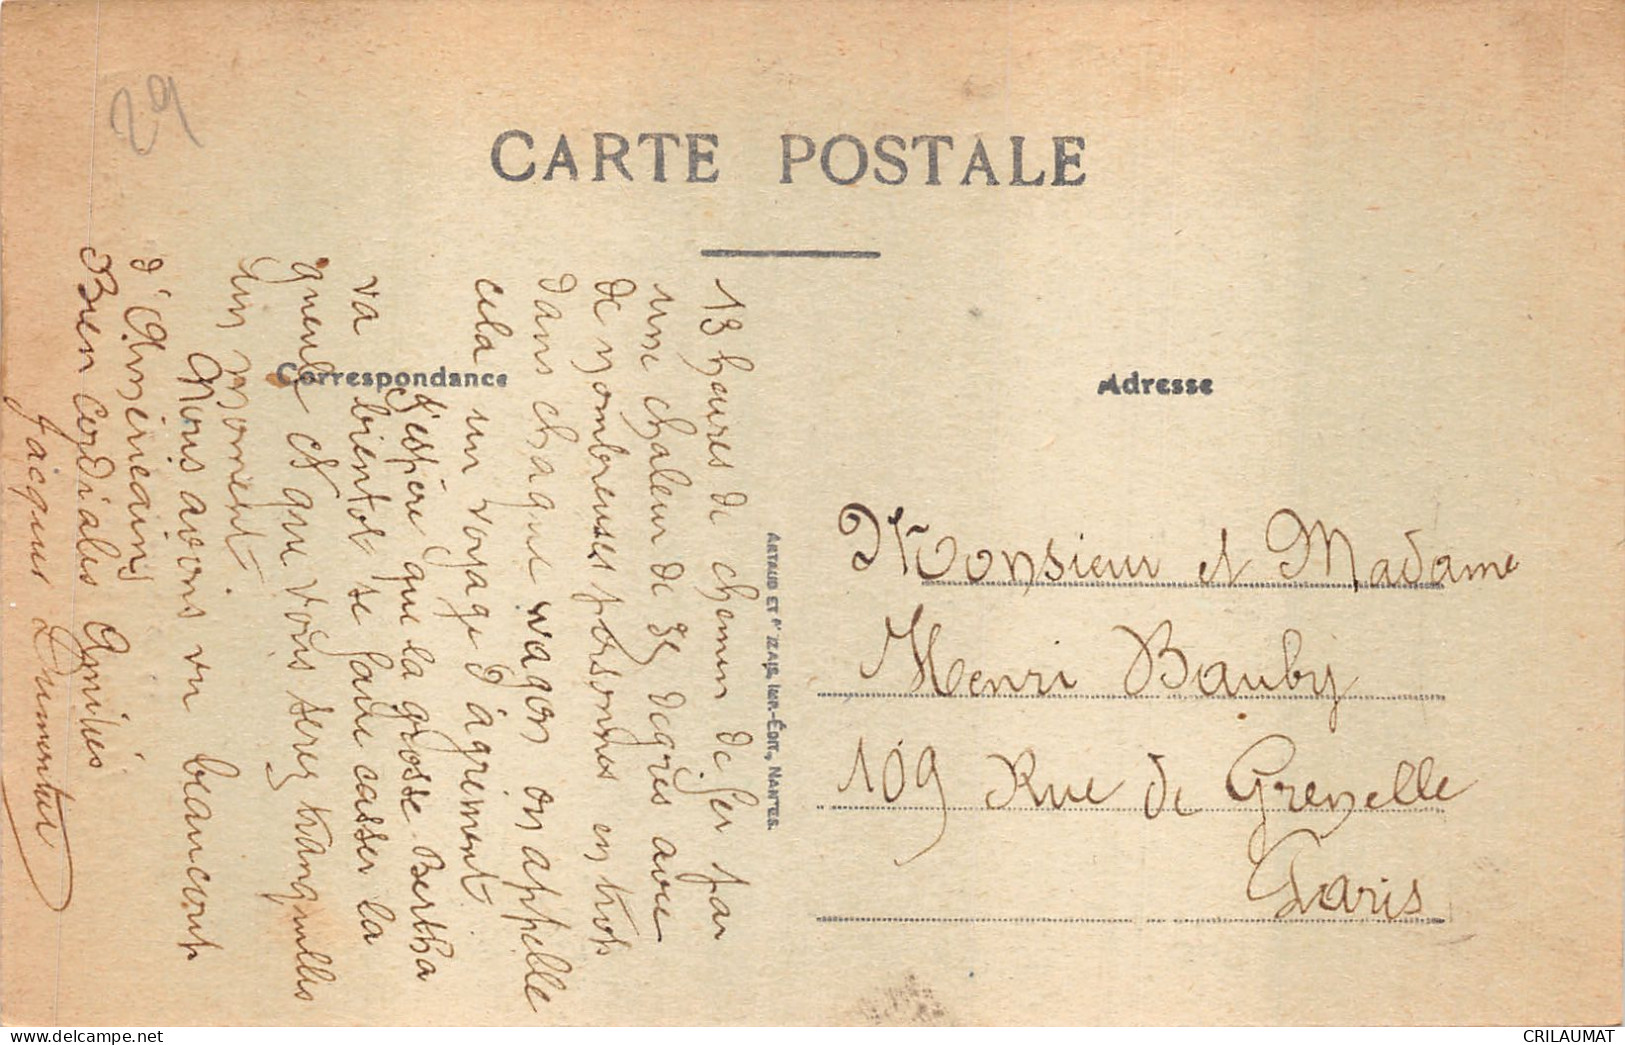 29
CARTE POSTALE
Correspondance
Adresse
13 heures de chemin de fer par
une chaleur de 35 degrés avec
de nombreuses personnes en trop
dans chaque wagon on appelle
cela un voyage d'agrément
J'espère que la grosse Bertha
va bientot se faire casser la
gueule et que vous serez tranquilles
un moment.
Nous avons vu beaucoup
d'Américains
Bien cordiales Amitiés
Jacques
ARTAUD ET NOZAIS, IMP.-ÉDIT., NANTES.
Monsieur et Madame
Henri Bauby
109 Rue de Grenelle
Paris
CRILAUMAT